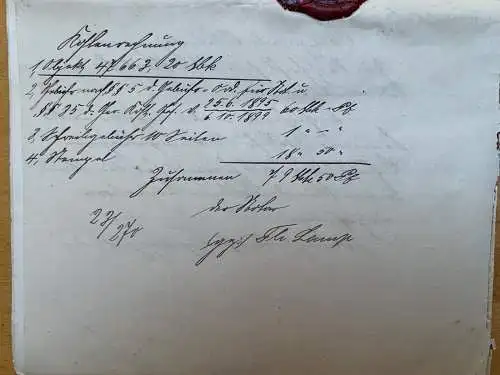 Kostenrechnung
1, Objekt 47662, 20 Mk
2, Gebühr nach § 5 d. Gebühr. O. d. für Not u
§§ 35 d. Ger. Kost. Ges. v. 25.6.1895 / 6.10.1899 60 Mk - Pf
3, Schreibgebühr 10 Seiten 1 " - "
4, Stempel 18 " 50 "
Zusammen 79 Mk 50 Pf
der Notar
23/270
(gez) Lamp